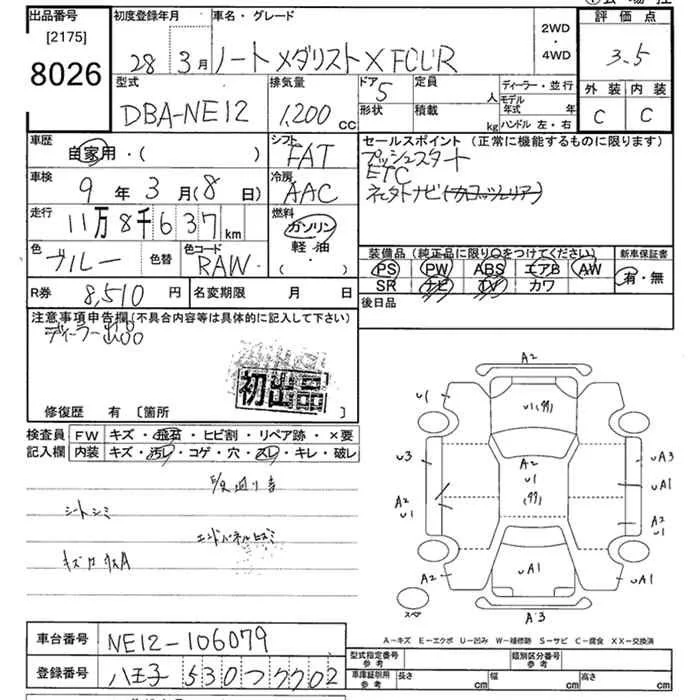 出品番号 初度登録年月 車名・グレード 2WD・4WD 評価点
[2175]
8026
28 3月 ノート メダリスト X FOUR 3.5
型式 排気量 ドア 定員 人 ディーラー・並行 外装 内装
DBA-NE12 1,200 cc 5 形状 積載 kg モデル年式 年 ハンドル 左・右 C C
車歴 自家用・( )
シフト FAT
セールスポイント (正常に機能するものに限ります)
プッシュスタート
ETC
車検 9年 3月(8日)
冷房 AAC
走行 11万8千637 km
燃料 ガソリン 軽油・( )
色 ブルー 色替 色コード RAW
装備品(純正品に限り○をつけてください) 新車保証書
PS PW ABS エアB AW 有・無
SR ナビ TV カワ
R券 8,510円 名変期限 月 日
後日品
注意事項申告欄(不具合内容等は具体的に記入して下さい)
ディーラー出品
初出品
修復歴 有 〔箇所 〕
検査員記入欄 FW キズ・飛石・ヒビ割・リペア跡・×要
内装 キズ・汚レ・コゲ・穴・スレ・キレ・破レ
シートシミ
エンドパネルヒズミ
A2
U1
U1
U3 A2 A3
U1 UA1
A2 A2
U1 U1
A2 UA1 UA1
スペア A3
A－キズ E－エクボ U－凹み W－補修跡 S－サビ C－腐食 XX－交換済
車台番号 NE12-106079
登録番号 八王子 530 つ 7702
型式指定番号 参考 類別区分番号 参考
車庫証明用 参考 長さ cm 幅 cm 高さ cm